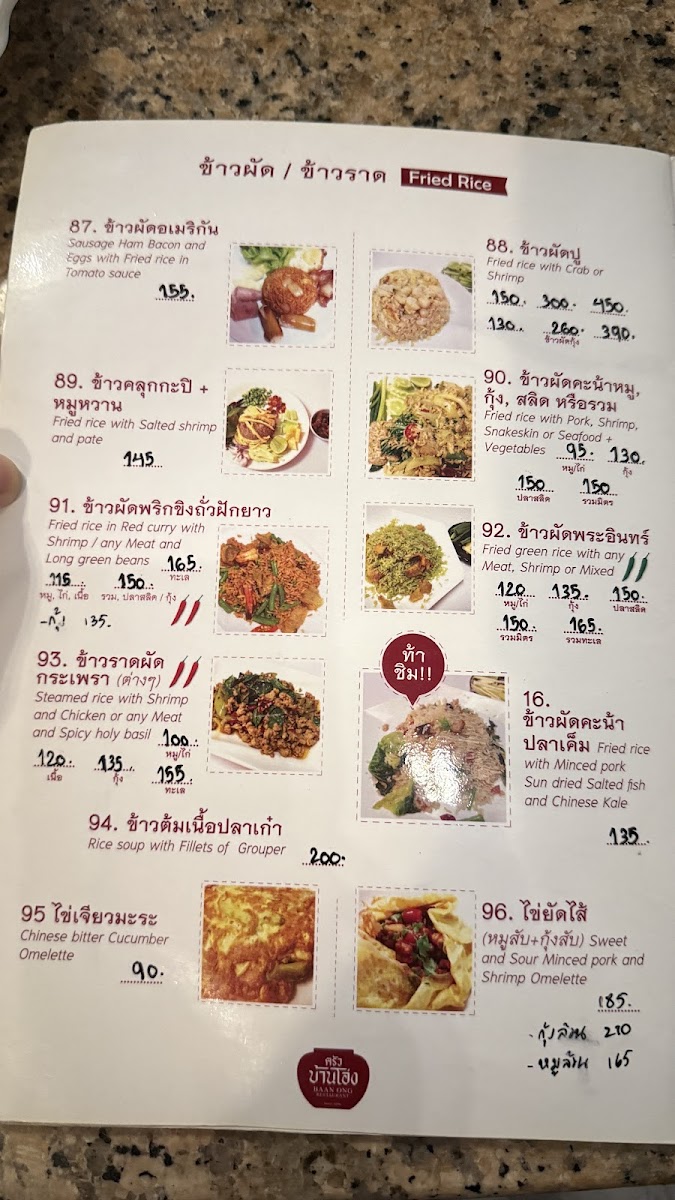 ข้าวผัด / ข้าวราด Fried Rice
87. ข้าวผัดอเมริกัน
Sausage Ham Bacon and
Eggs with Fried rice in
Tomato sauce
155.
88. ข้าวผัดปู
Fried rice with Crab or
Shrimp
150. 300. 450.
130. 260. 390.
ข้าวผัดกุ้ง
89. ข้าวคลุกกะปิ +
หมูหวาน
Fried rice with Salted shrimp
and pate
145
90. ข้าวผัดคะน้าหมู,
กุ้ง, สลิด หรือรวม
Fried rice with Pork, Shrimp,
Snakeskin or Seafood +
Vegetables 95. 130.
หมู/ไก่ กุ้ง
150 150
ปลาสลิด รวมมิตร
91. ข้าวผัดพริกขิงถั่วฝักยาว
Fried rice in Red curry with
Shrimp / any Meat and
Long green beans 165.
ทะเล
115. 150.
หมู, ไก่, เนื้อ รวม, ปลาสลิด / กุ้ง
-กุ้ง 135.
92. ข้าวผัดพระอินทร์
Fried green rice with any
Meat, Shrimp or Mixed
120 135. 150.
หมู/ไก่ กุ้ง ปลาสลิด
150. 165.
รวมมิตร รวมทะเล
93. ข้าวราดผัด
กระเพรา (ต่างๆ)
Steamed rice with Shrimp
and Chicken or any Meat
and Spicy holy basil 100.
หมู/ไก่
120. 135 155
เนื้อ กุ้ง ทะเล
ท้า
ชิม!!
16.
ข้าวผัดคะน้า
ปลาเค็ม Fried rice
with Minced pork
Sun dried Salted fish
and Chinese Kale
135.
94. ข้าวต้มเนื้อปลาเก๋า
Rice soup with Fillets of Grouper
200.
95 ไข่เจียวมะระ
Chinese bitter Cucumber
Omelette
90.
96. ไข่ยัดไส้
(หมูสับ+กุ้งสับ) Sweet
and Sour Minced pork and
Shrimp Omelette
185.
- กุ้งล้วน 210
- หมูล้วน 165
ครัว
บ้านโอ่ง
BAAN ONG
RESTAURANT